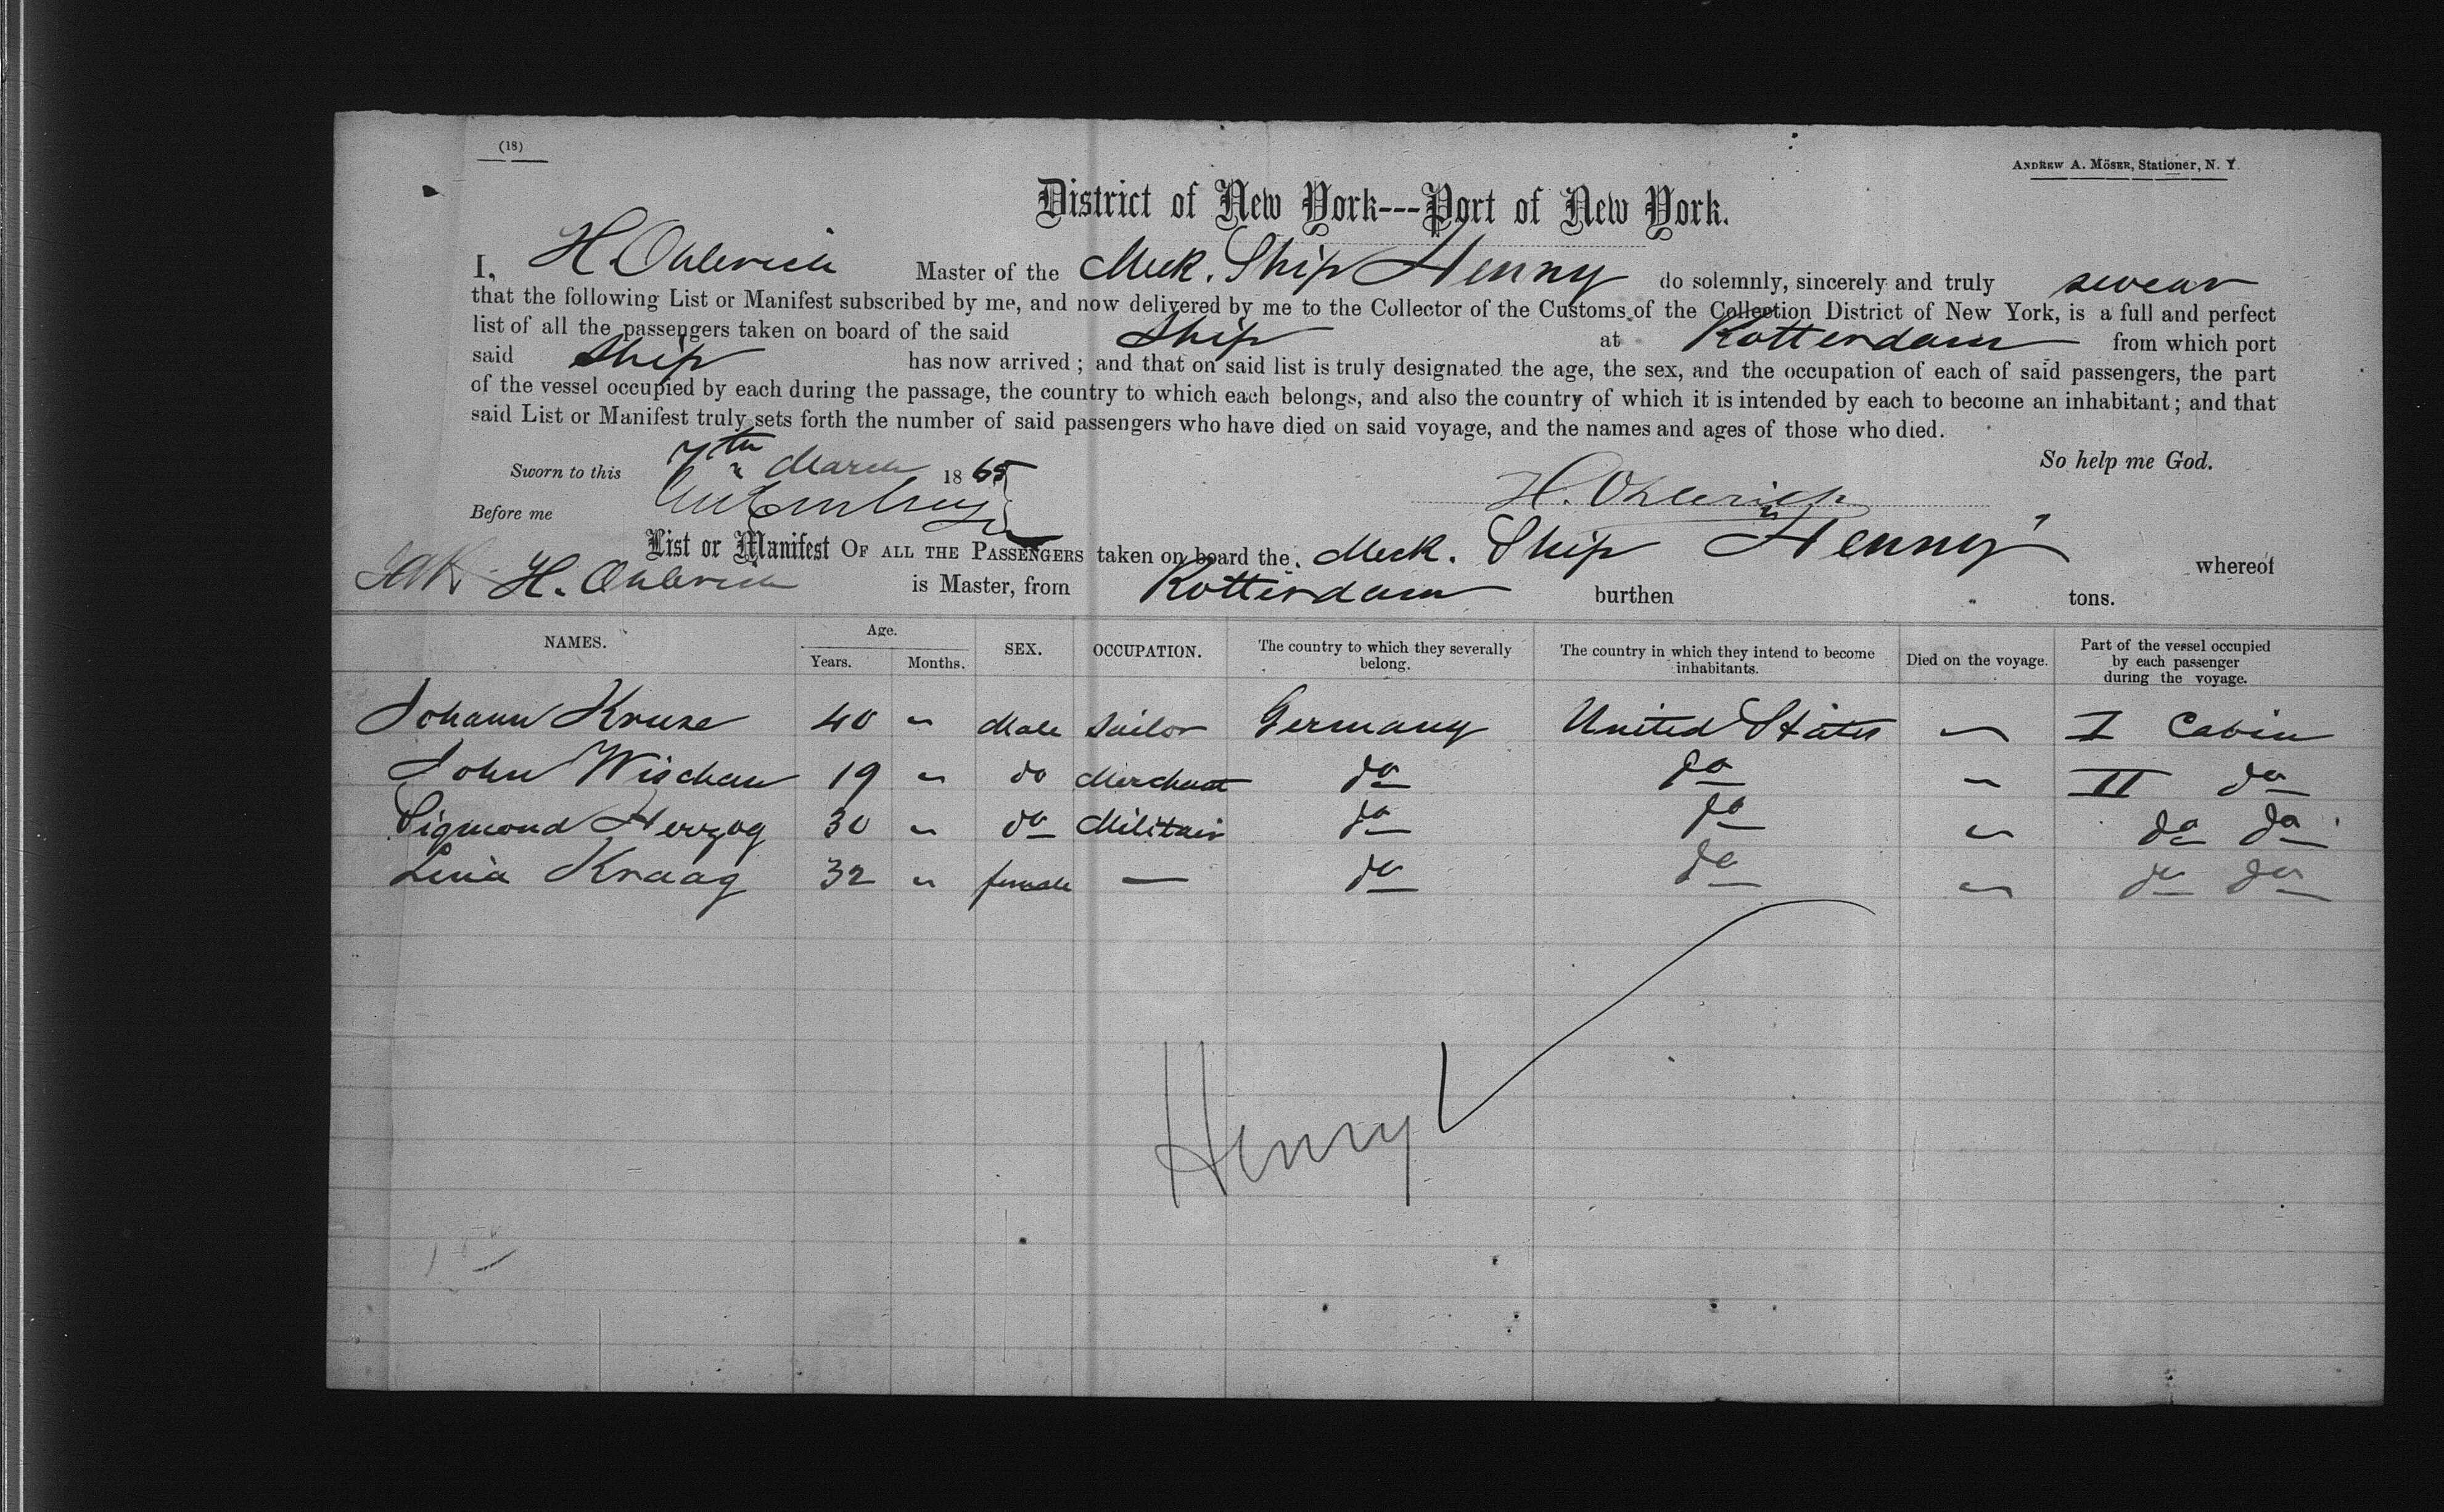 (18)
ANDREW A. MÖSER, Stationer, N. Y.
District of New York---Port of New York.
I, H. Ohlerich Master of the Meck. Ship Henny do solemnly, sincerely and truly swear
that the following List or Manifest subscribed by me, and now delivered by me to the Collector of the Customs of the Collection District of New York, is a full and perfect
list of all the passengers taken on board of the said Ship at Rotterdam from which port
said Ship has now arrived; and that on said list is truly designated the age, the sex, and the occupation of each of said passengers, the part
of the vessel occupied by each during the passage, the country to which each belongs, and also the country of which it is intended by each to become an inhabitant; and that
said List or Manifest truly sets forth the number of said passengers who have died on said voyage, and the names and ages of those who died.
So help me God.
Sworn to this 7th March 1865
H. Ohlerich
Before me
List or Manifest OF ALL THE PASSENGERS taken on board the Meck. Ship "Henny" whereof
H. Ohlerich is Master, from Rotterdam burthen tons.
NAMES. Age. Years. Months. SEX. OCCUPATION. The country to which they severally belong. The country in which they intend to become inhabitants. Died on the voyage. Part of the vessel occupied by each passenger during the voyage.
Johann Kruse 40 " Male Sailor Germany United States " I Cabin
John Wischan 19 " do Merchant do do " II do
Sigmond Herzog 30 " do Militair do do " do do
Lina Kraag 32 " female — do do " do do
Henny